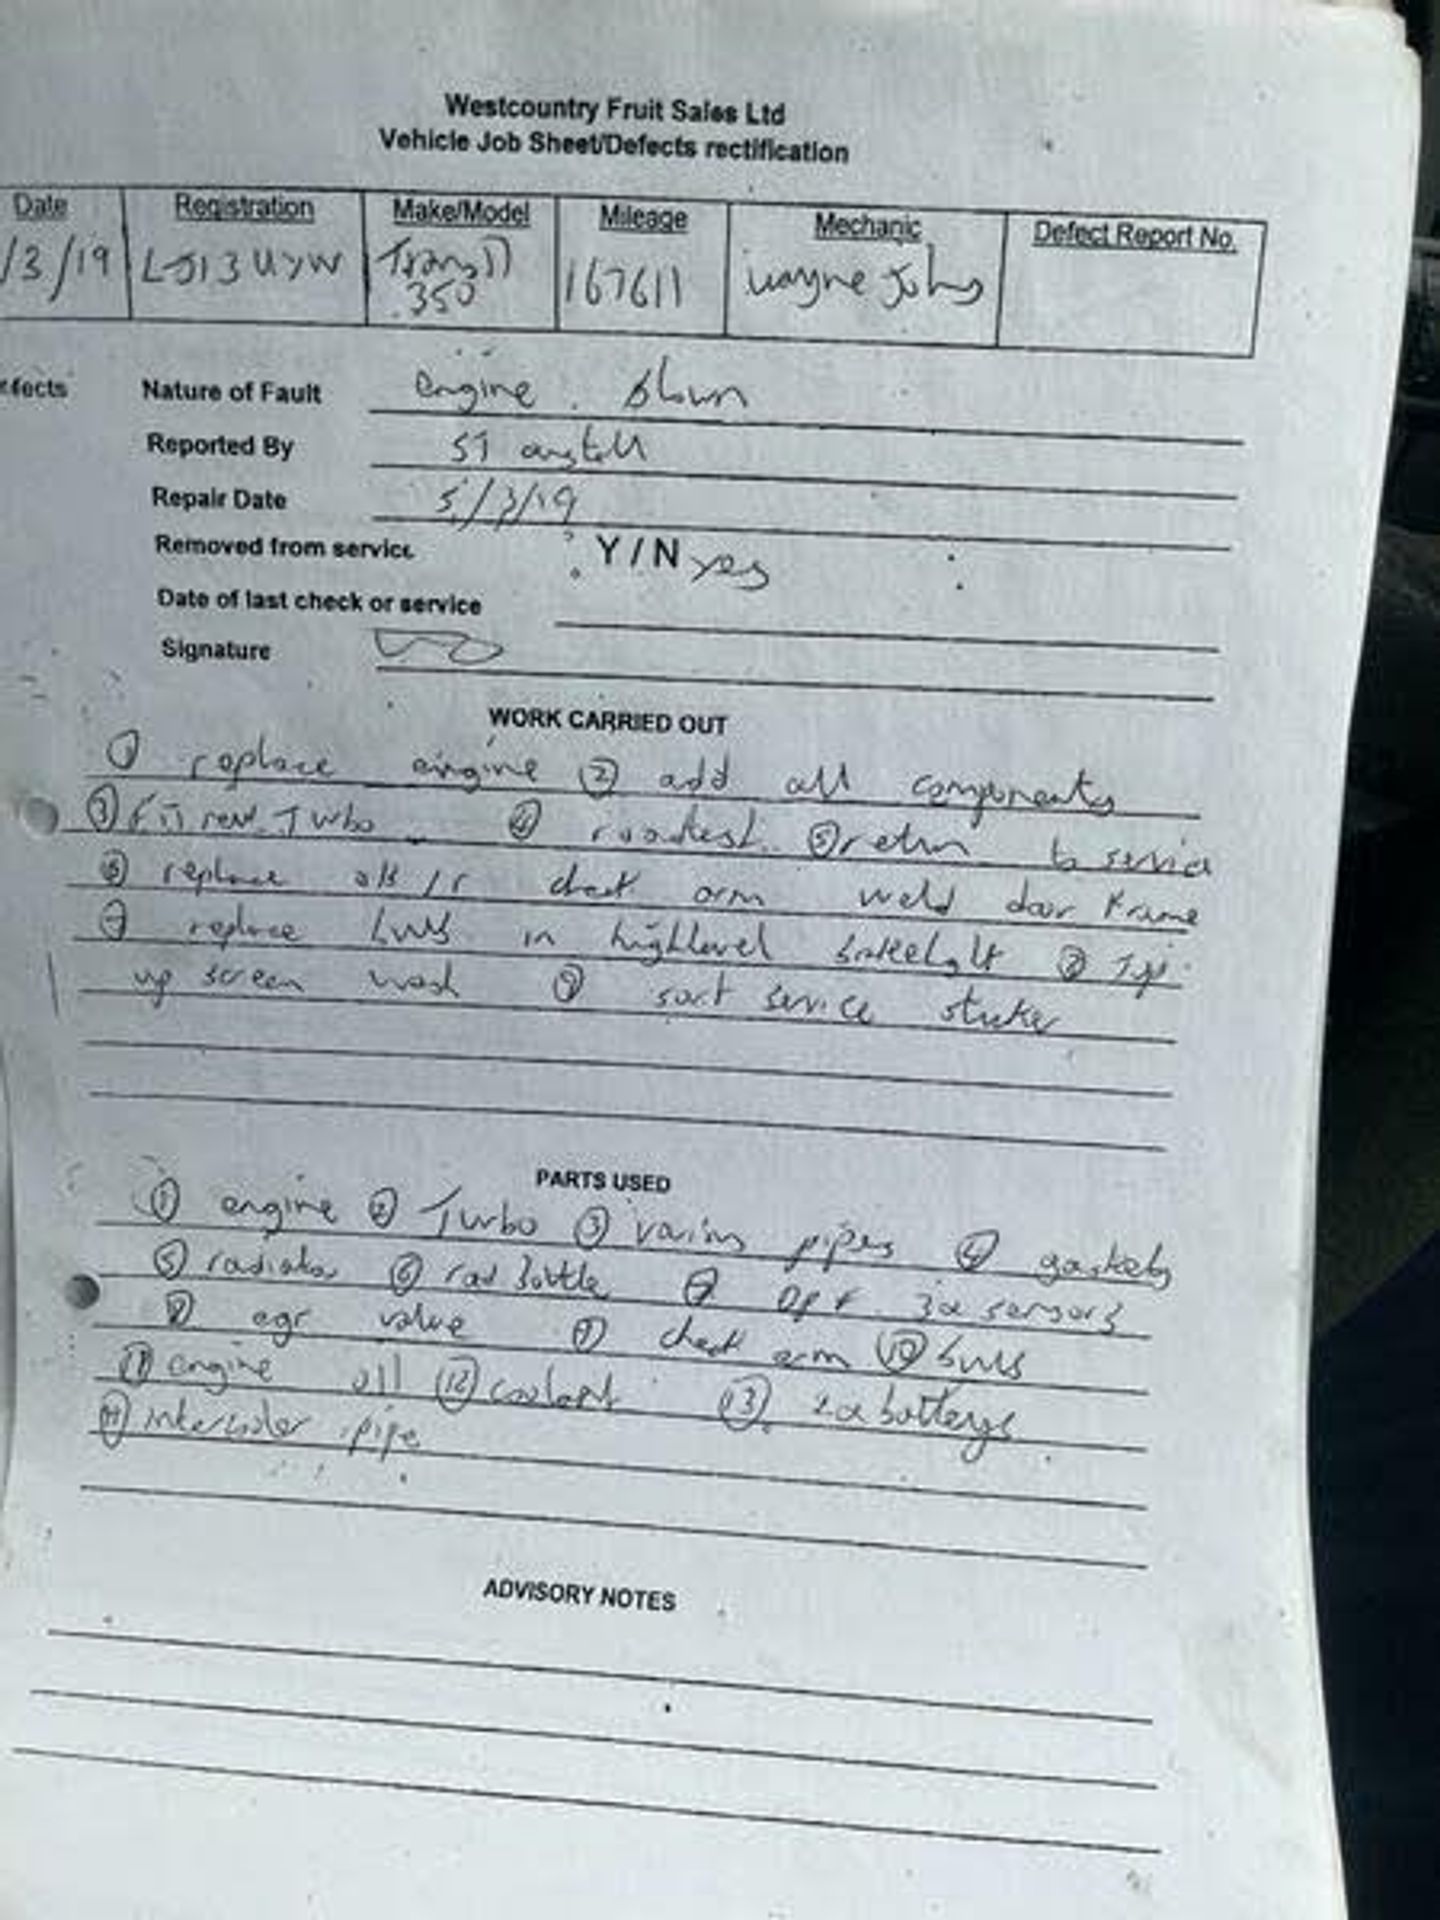 Westcountry Fruit Sales Ltd
Vehicle Job Sheet/Defects rectification
Date Registration Make/Model Mileage Mechanic Defect Report No.
/3/19 LJ13UYW Transit 350 167611 wayne Johns
Nature of Fault engine blown
Reported By ST austell
Repair Date 5/3/19
Removed from service Y / N yes
Date of last check or service
Signature
WORK CARRIED OUT
① replace engine ② add all components
③ Fit new Turbo ④ roadtest ⑤ return to service
⑥ replace o/s/f check arm weld door frame
⑦ replace bulbs in highlevel brakelight ⑧ Top
up screen wash ⑨ sort service sticker
PARTS USED
① engine ② Turbo ③ various pipes ④ gaskets
⑤ radiator ⑥ rad bottle ⑦ DPF 3x sensors
⑧ egr valve ⑨ check arm ⑩ bulbs
⑪ engine oil ⑫ coolant ⑬ 2x batterys
⑭ intercooler pipe
ADVISORY NOTES